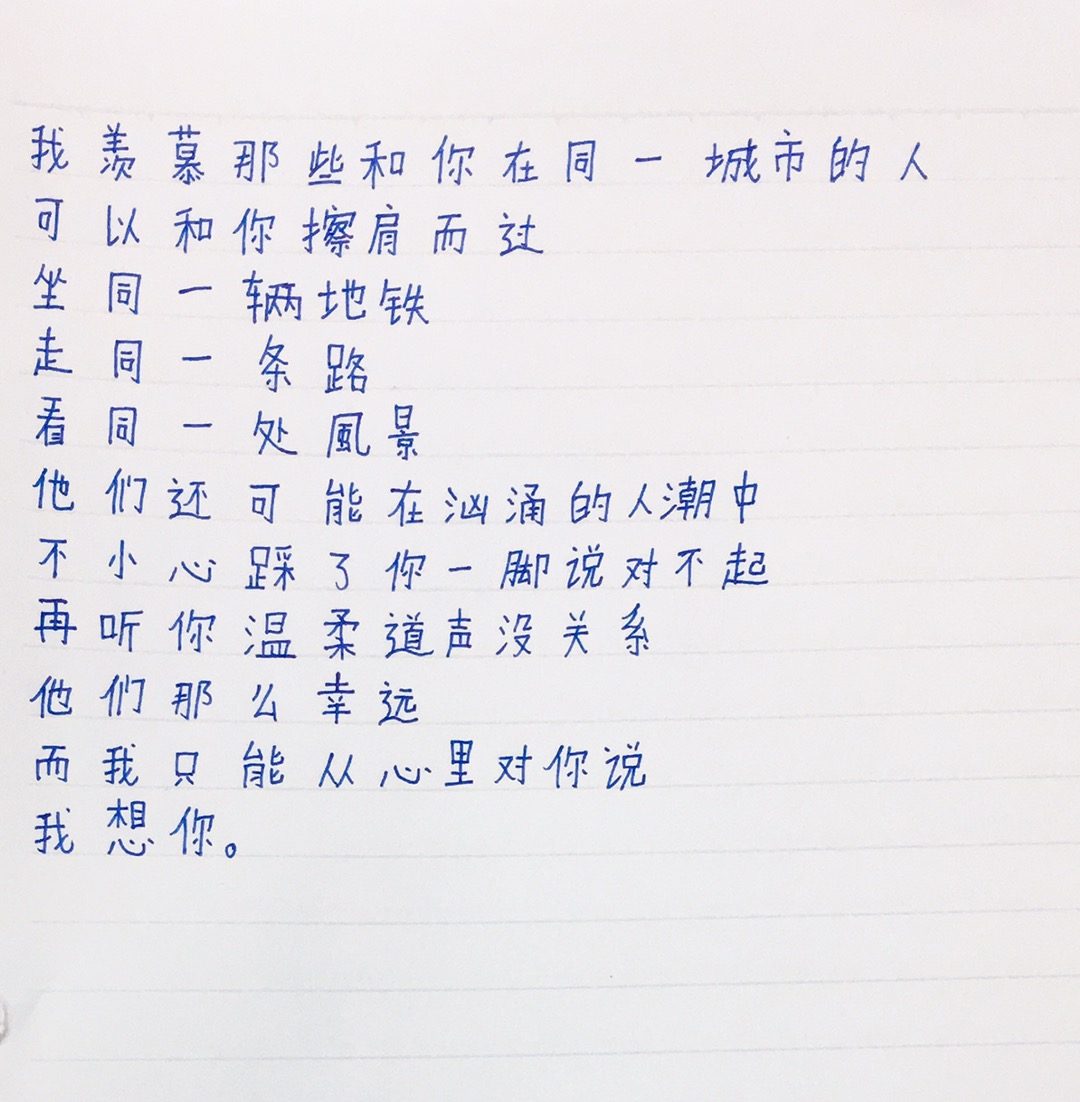 我羡慕那些和你在同一城市的人
可以和你擦肩而过
坐同一辆地铁
走同一条路
看同一处風景
他们还可能在汹涌的人潮中
不小心踩了你一脚说对不起
再听你温柔道声没关系
他们那么幸远
而我只能从心里对你说
我想你。